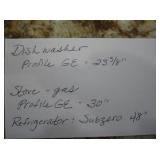 Dishwasher
Profile GE - 23⅝"
Stove - gas
Profile GE - 30"
Refrigerator: Subzero 48"